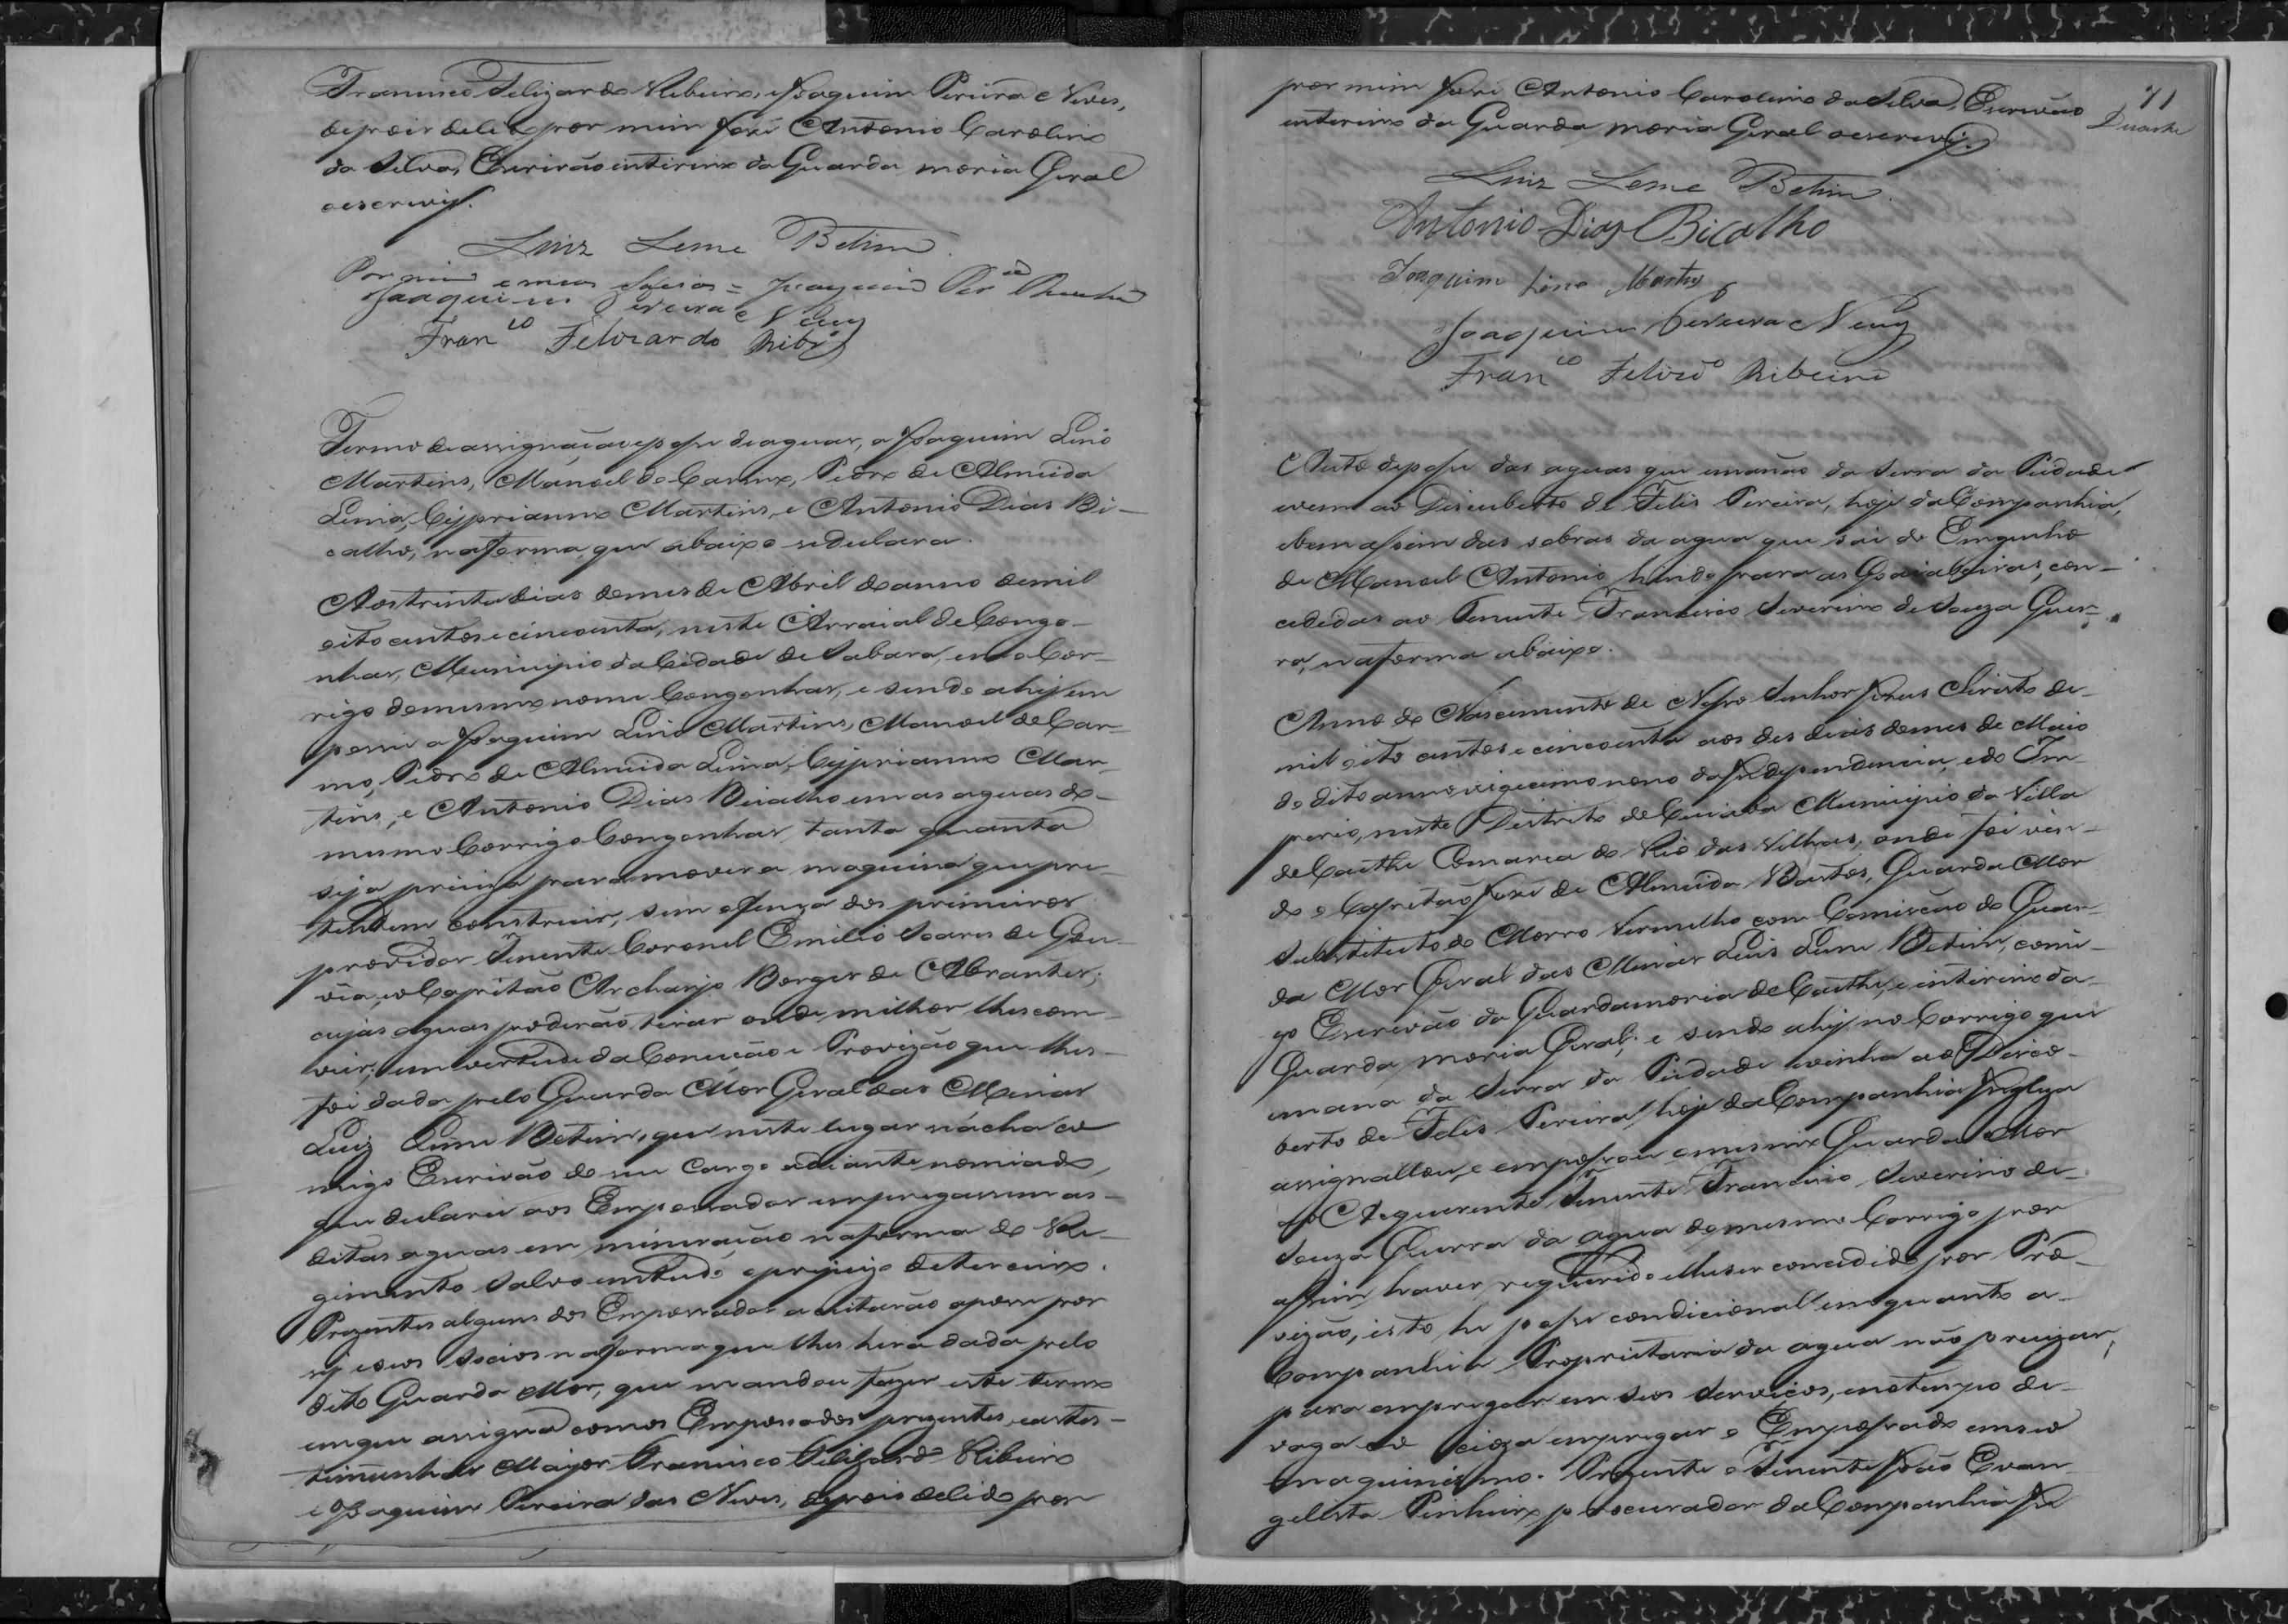 Francisco Felizardo Ribeiro, e Joaquim Pereira e Neves,
depois de lido por mim José Antonio Carolino
da Silva, Escrivão interino da Guarda moria Geral
o escrevi.
Luiz Leme Betim
Por mim e meus Socios = Joaquim Per.ª
Joaquim Pereira e Neves
Fran.co Felizardo Ribr.º
Termo de assignação e posse de aguas, a Joaquim Lino
Martins, Manoel do Carmo, Pedro de Almeida
Lima, Cyprianno Martins, e Antonio Dias Bi-
calho, na forma que abaixo se declara.
Aos trinta dias do mes de Abril do anno de mil
oito centos e cincoenta, neste Arraial de Congo-
nhas, Municipio da Cidade de Sabara, e no Cor-
rigo do mesmo nome Congonhas, e sendo ahi, em
possei a Joaquim Lino Martins, Manoel do Car-
mo, Pedro de Almeida Lima, Cyprianno Mar-
tins, e Antonio Dias Bicalho em as aguas do
mesmo Corrigo Congonhas, tanta quanta
seja preciza para mover a maquina que pre-
tendem construir, sem ofença dos primeiros
provido Tenente Coronel Emilio Soares de Gou-
vêa, e o Capitão Archanjo Borges de Abrantes;
cujas aguas poderão tirar onde milhor lhes com-
vier; em vertude da Concução e Provizão que lhes
foi dada pelo Guarda Mor Geral das Minas
Luiz Leme Betim, que neste lugar s'acha co
migo Escrivão de seu Cargo adiante nomiado,
que declarei aos Empossados empregassem as
ditas aguas em mineração na forma do Re-
gimento salvo em tudo o prejuizo de terceiro.
Prezentes alguns dos Empossados aceitarão a posse por
si e seos Socios na forma que lhes hera dada pelo
dito Guarda Mor, que mandou fazer este termo
em que assigna com os Empossados prezentes, e as tes-
timunhas Major Francisco Felizardo Ribeiro
e Joaquim Pereira das Neves, depois de lido por
71
Duarte
por mim José Antonio Carolino da Silva, Escrivão
interino da Guarda moria Geral o escrevi.
Luiz Leme Betim
Antonio Dias Bicalho
Joaquim Lino Martins
Joaquim Pereira e Neves
Fran.co Felizd.º Ribeiro
Auto de posse das aguas que emanão da Serra da Piedade
e vem ao Discuberto de Felis Pereira, hoje da Companhia,
e bem assim das sobras da agua que sai do Emgenho
de Manoel Antonio hindo para as Goaiabeiras, con-
cedidas ao Tenente Francisco Severino de Souza Guer-
ra, na forma abaixo.
Anno do Nascimento de Nosso Senhor Jezus Christo de
mil oito centos e cincoenta aos des dias do mes de Maio
do dito anno vigecimo nono da Independencia, e do Im-
perio, neste Distrito de Cuiaba Municipio da Villa
de Caethe Comarca do Rio das Velhas, onde foi vin-
do o Capitão José de Almeida Bastos, Guarda Mor
Substituto do Morro Vermelho com Comissão do Guar-
da Mor Geral das Minas Luis Leme Betim, comi-
go Escrivão da Guardamoria de Caethe, e interino da
Guarda moria Geral; e sendo ahi, no Corrigo que
emana da Serra da Piedade e vinha ao Disco-
berto de Felis Pereira, hoje da Companhia Ingleza
assignallou, e empossou o mesmo Guarda Mor
ao Requerente Tenente Francisco Severino de
Souza Guerra da agua do mesmo Corrigo por
assim haver requerido e lhe ser concedido por Pro-
vizão, isto he posse condicional emquanto a
Companhia Proprietaria da agua não precizar,
para empregar em seos Serviços, e no tempo de
vaga eo seoza empregar o Empossado em seo
maquinismo. Prezente o Tenente João Evan
gelista Pinheiro procurador da Companhia In